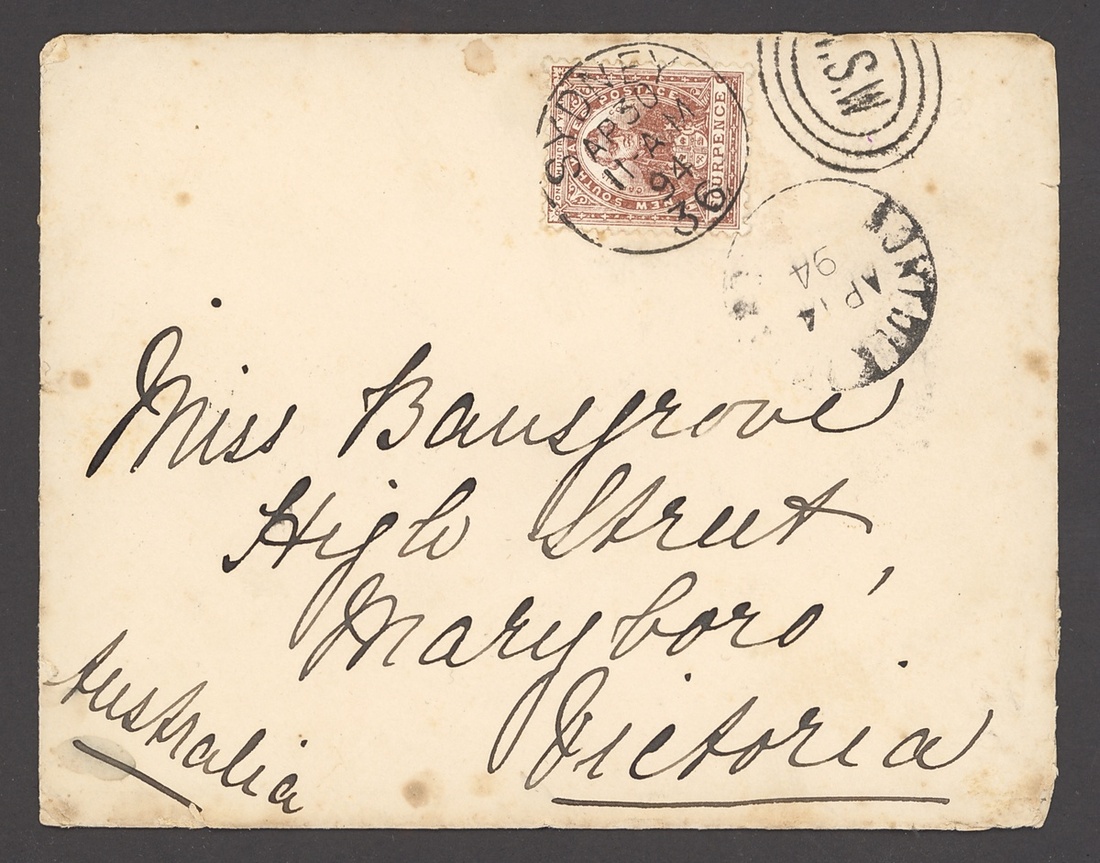 SYDNEY
AP 30
11 AM
94
36
POSTAGE
NEW SOUTH WALES
URPENCE
N.S.W
AP 14
94
Miss Bansgrove
High Street
Maryboro'
Victoria
Australia